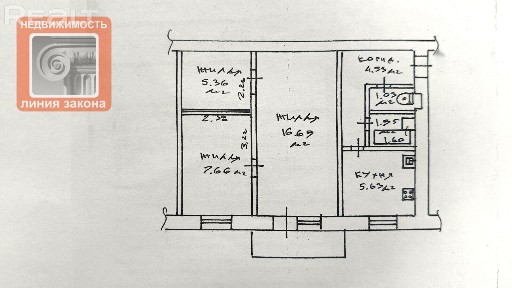 Realt
НЕДВИЖИМОСТЬ
ЛИНИЯ ЗАКОНА
ЖИЛАЯ
5.36
м2
2.38
ЖИЛАЯ
7.66 м2
ЖИЛАЯ
16.69
м2
КОРИД.
4.33 м2
1.03
м2
1.35
1.60
КУХНЯ
5.63 м2